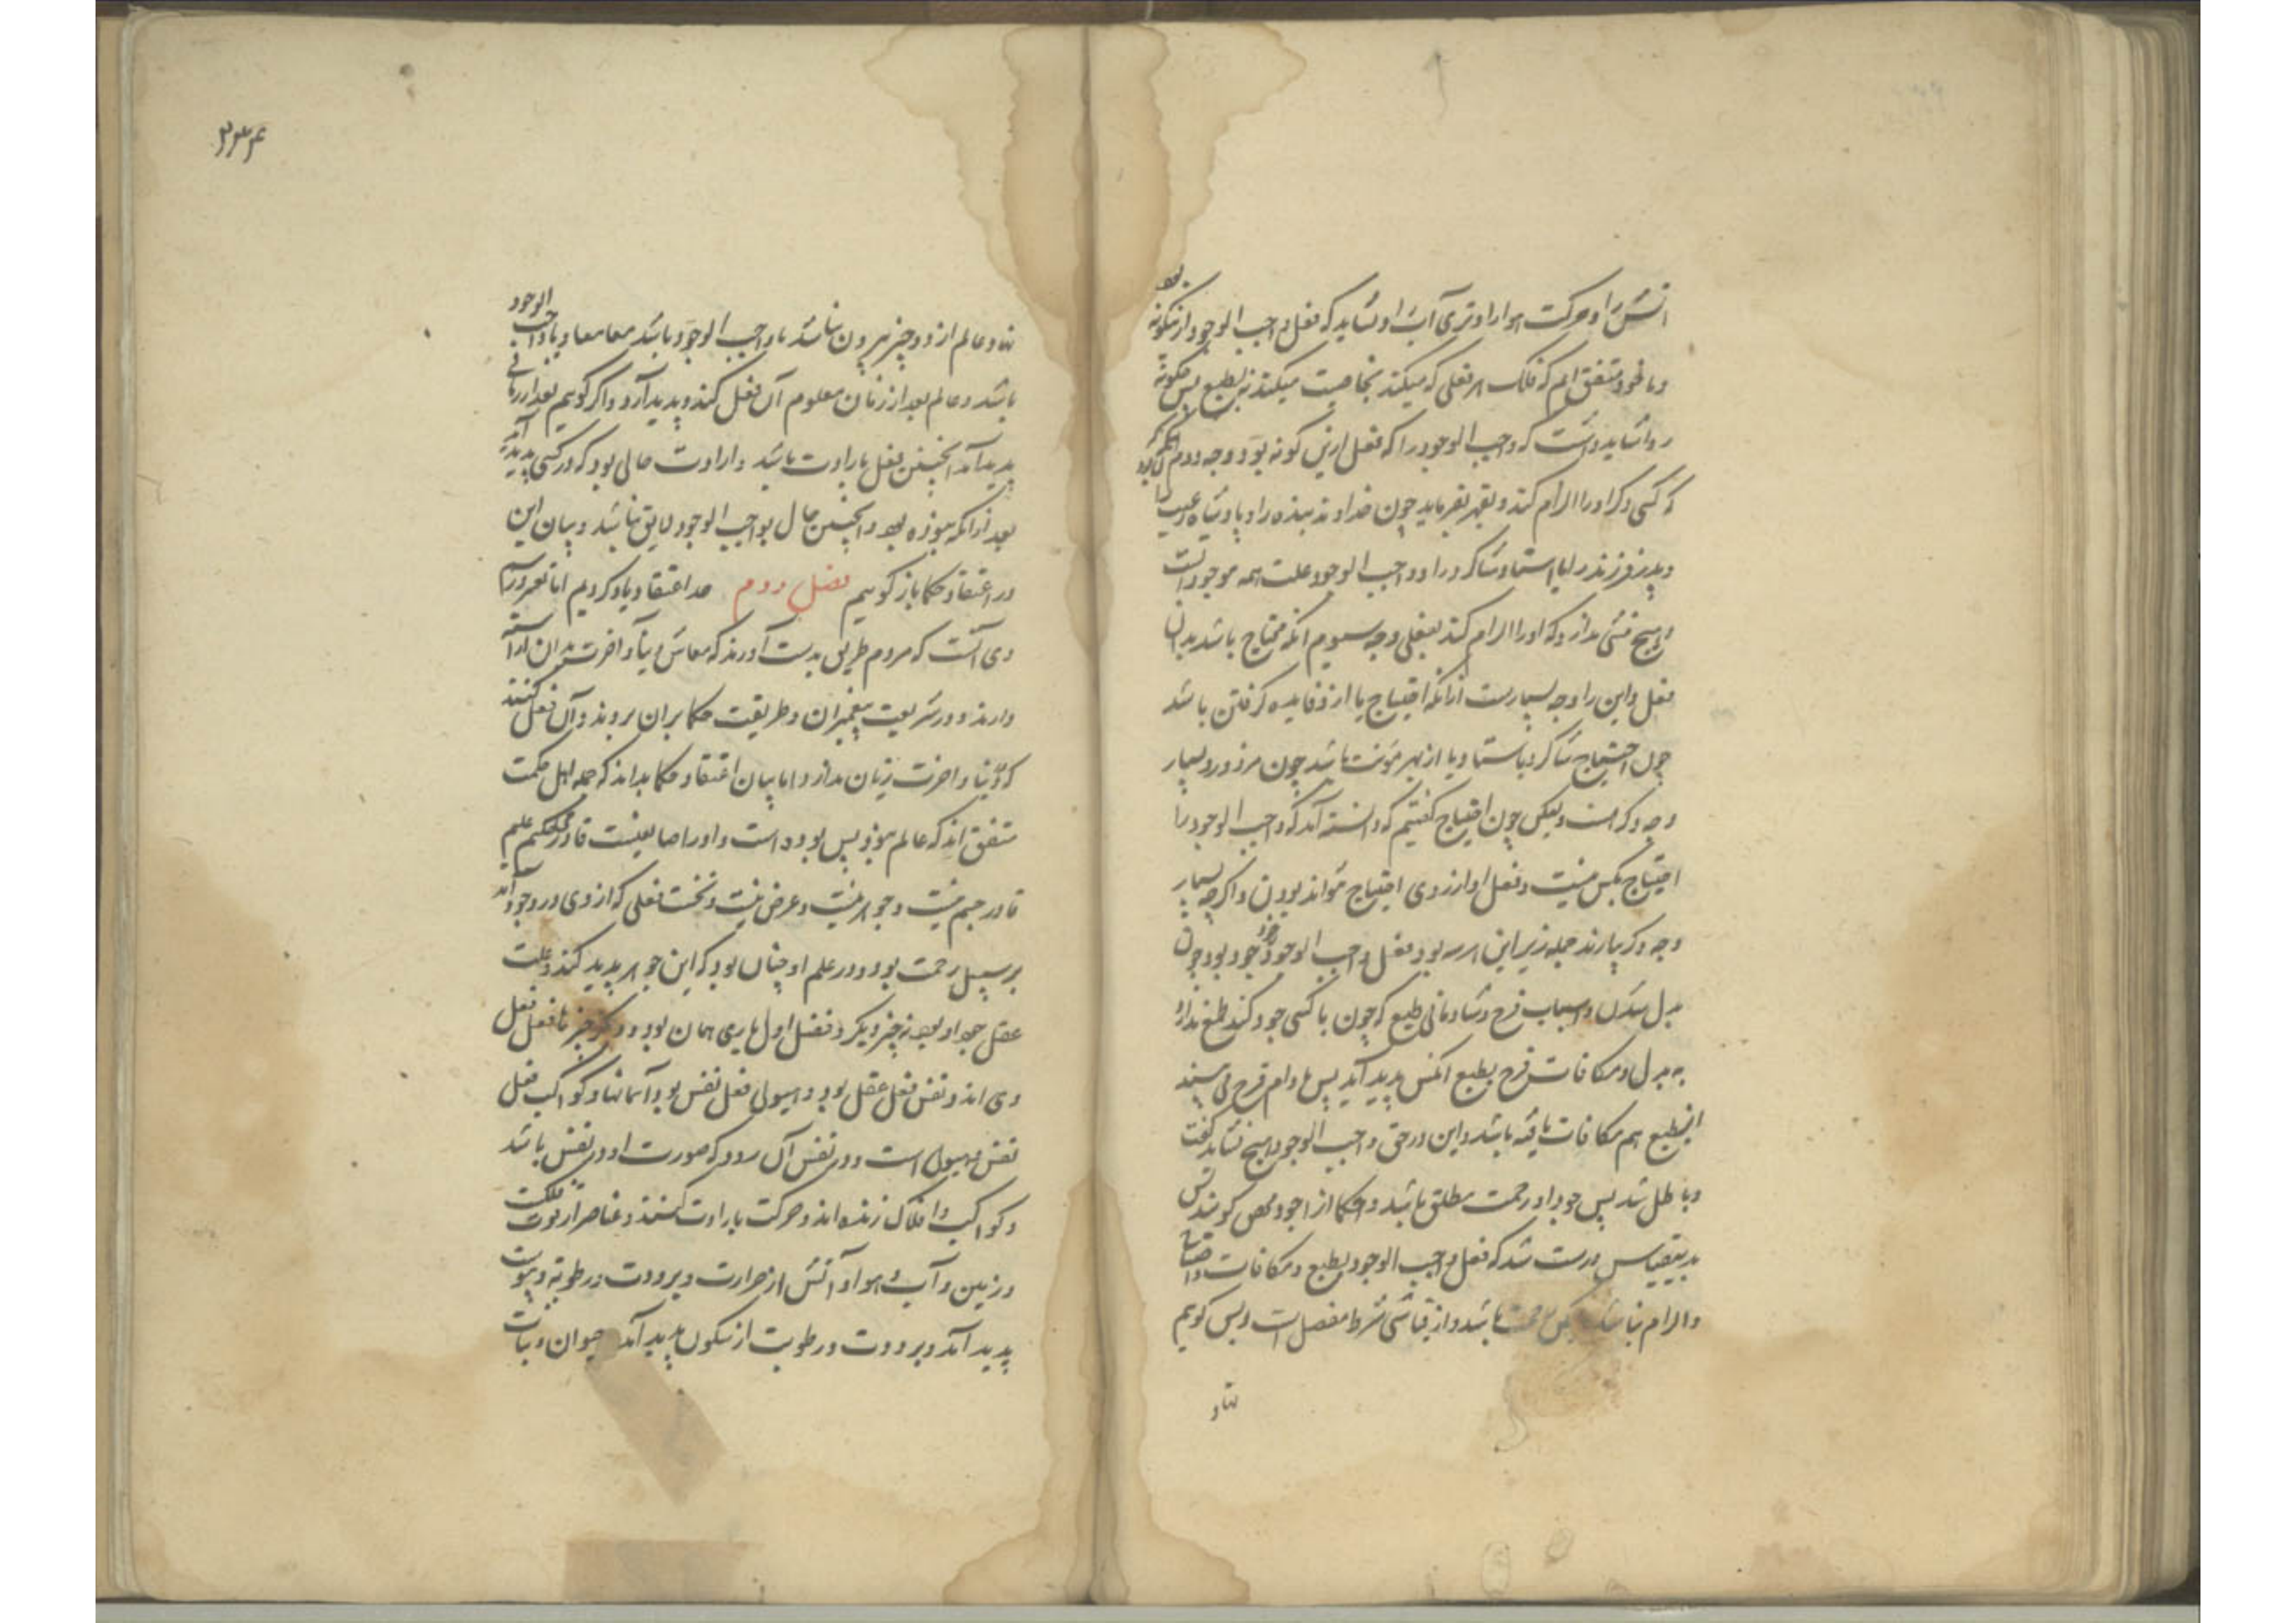 آتش را و حرکت هوا را و تری آب را و نشاید که فعل واجب الوجود ازینگونه بود
و ما خود متفق ایم که فلک هر فعلی که میکند بخاصیت میکند نه بطبع پس چگونه
روا شاید داشت که واجب الوجود را که فعل ازین گونه بود و وجه دوم آنکه
که کسی دیگر او را الزام کند و بقهر بفرماید چون خداوند بنده را و پادشاه رعیت را
و پدر فرزند را یا استاد شاگرد را و واجب الوجود علت همه موجودات است
و هیچ شئ ندارد که او را الزام کند بفعلی وجه سیوم آنکه محتاج باشد بدان
فعل و این را وجه بسیارست از آنکه احتیاج یا از فایده گرفتن باشد
چون احتیاج شاگرد باستاد و یا از بهر مؤنت باشد چون مزدور و بسیار
وجه دیگر است و لیکن چون احتیاج گفتیم که دانسته آمد که واجب الوجود را
احتیاج بکس نیست و فعل او از روی احتیاج نتواند بودن و اگرچه بسیار
وجه دیگر بیارند جمله زیر این هر سه بود و فعل واجب الوجود جود بود چون
بدل شدن و اسباب فرح و شادمانی طبع که چون با کسی جود کند طمع ندارد
به بدل و مکافات فرح بطبع آنکس پدید آید پس مادام فرح
بطبع هم مکافات یافته باشد و این در حق واجب الوجود هیچ نشاید گفت
و باطل شد پس جود او رحمت مطلق باشد و حکما آنرا جود محض گویند پس
بدین قیاس درست شد که فعل واجب الوجود بطبع و مکافات و احتیاج
و الزام نباشد لیکن رحمت باشد و از قیاس شرط منفصل است و پس گوییم
نهاد
۲۳۴
نهاد عالم از دو چیز بیرون نباشد یا واجب الوجود باشد معا معا و یا واجب الوجود
باشد و عالم بعد از زمان معلوم آن فعل کند و پدید آرد و اگر گوییم بعد از زمانی
پدید آمد اینچنین فعل بارادت باشد و ارادت حالی بود که در کسی پدید آید
بعد از آنکه نبوده بود و اینچنین حال بواجب الوجود لایق نباشد و بیان این
در اعتقاد حکما باز گوییم فصل دوم حد اعتقاد یاد کردیم اما تصور رسم
وی آنست که مردم طریقی بدست آورند که معاش دنیا و آخرت بدان آراسته
دارند و در شریعت پیغمبران و طریقت حکما بران بروند و آن فعل کنند
که دنیا و آخرت زیان ندارد اما بیان اعتقاد حکما بداند که جمله اهل حکمت
متفق اند که عالم نبود پس بوده است و او را صانعیست قادر حکیم علیم
قادر جسم نیست و جوهر نیست و عرض نیست و نخست فعلی که از وی در وجود آمد
بر سبیل رحمت بود و در علم او چنان بود که این جوهر پدید کند و علت
عقل جود او بود نه چیز دیگر و فعل اول باری همان بود و دیگر چیزها فعل فعل
وی اند و نفس فعل عقل بود و هیولی فعل نفس بود و آسمانها و کواکب فعل
نفس و هیولی است و در نفس آن رود که صورت او در نفس باشد
و کواکب و افلاک زنده اند و حرکت بارادت کنند و عناصر از قوت فلکست
و زمین و آب و هوا و آتش از حرارت و برودت و رطوبت و یبوست
پدید آمد و برودت و رطوبت از سکون پدید آمد و حیوان و نبات